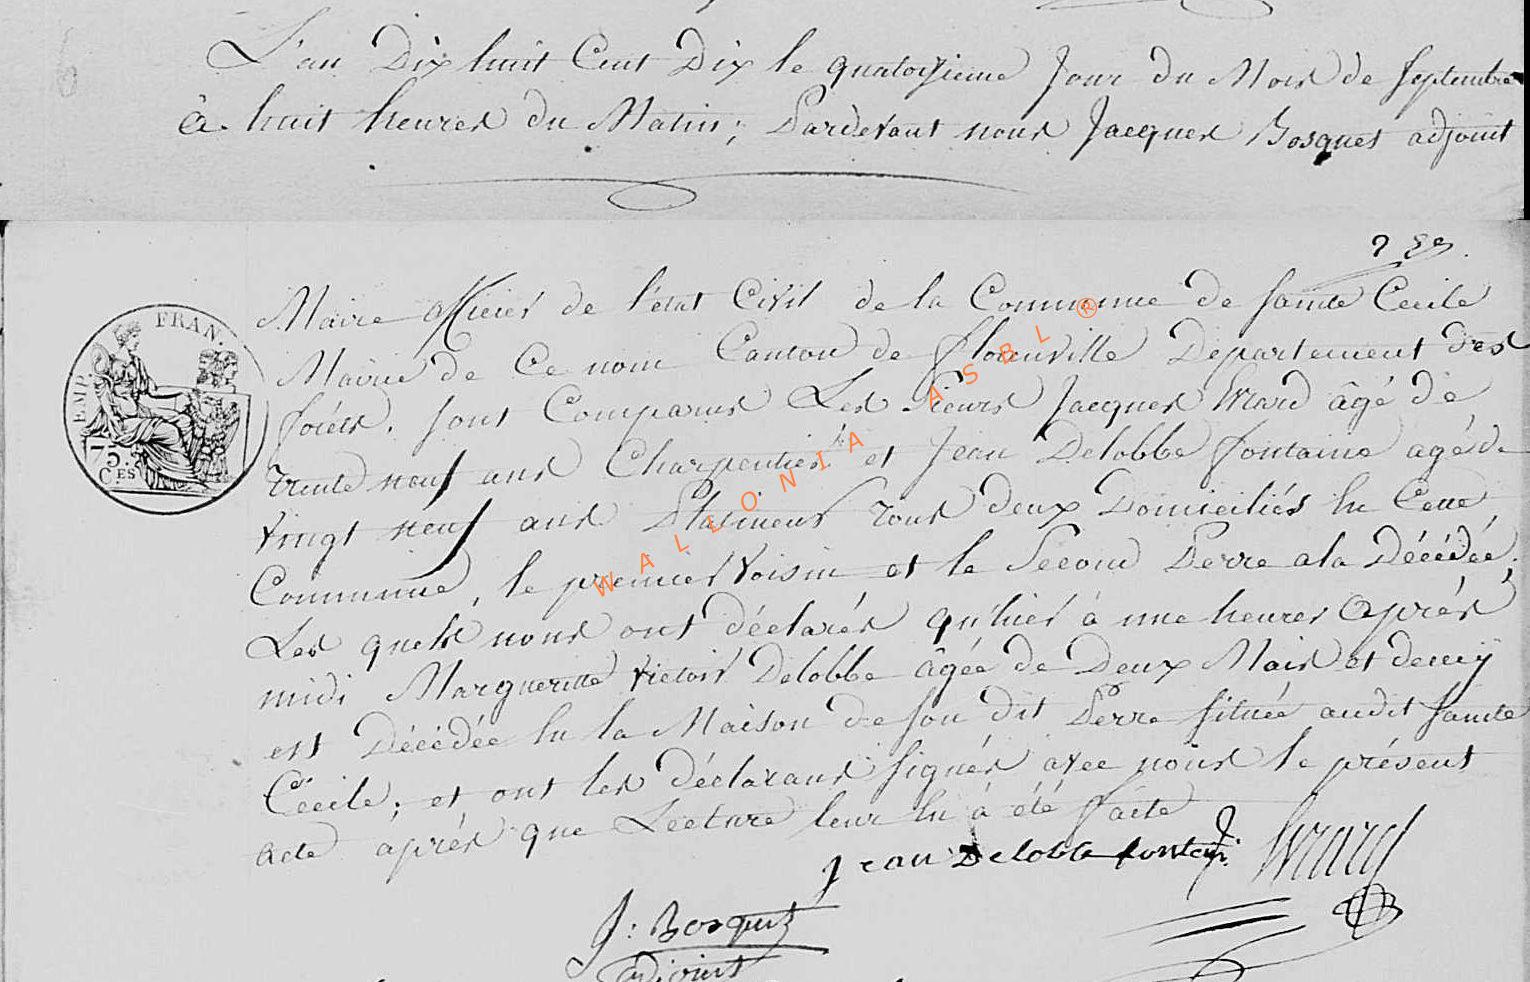 L'an Dix huit Cent Dix le quatorzieme Jour du Mois de Septembre
à huit heures du Matin; Pardevant nous Jacques Bosquet adjoint
Maire officier de l'état Civil de la Commune de Sainte Cecile
Mairie de Ce nom Canton de florenville Departement des
forêts. Sont Comparus Les Sieurs Jacques Evrard âgé de
trente neuf ans Charpentier et Jean Delobbe fontaine agé de
vingt neuf ans Plafineur tous deux Domiciliés En Cette
Commune, le premier Voisin et le Second Perre a la Décédée,
Les quels nous ont déclarés qu'hier à une heures Après
midi Margueritte Victoir Delobbe âgée de Deux Mois et demÿ
est Décédée En la Maison de son dit Perre située audit Sainte
Cécile; et ont les déclarans signés avec nous le présent
acte aprés que Lecture leur En à été faite
Jean Delobbe fontain J Evrard
J: Bosquet
adjoint
EMP. FRAN.
75 C.ES
WALLONIA ASBL ®